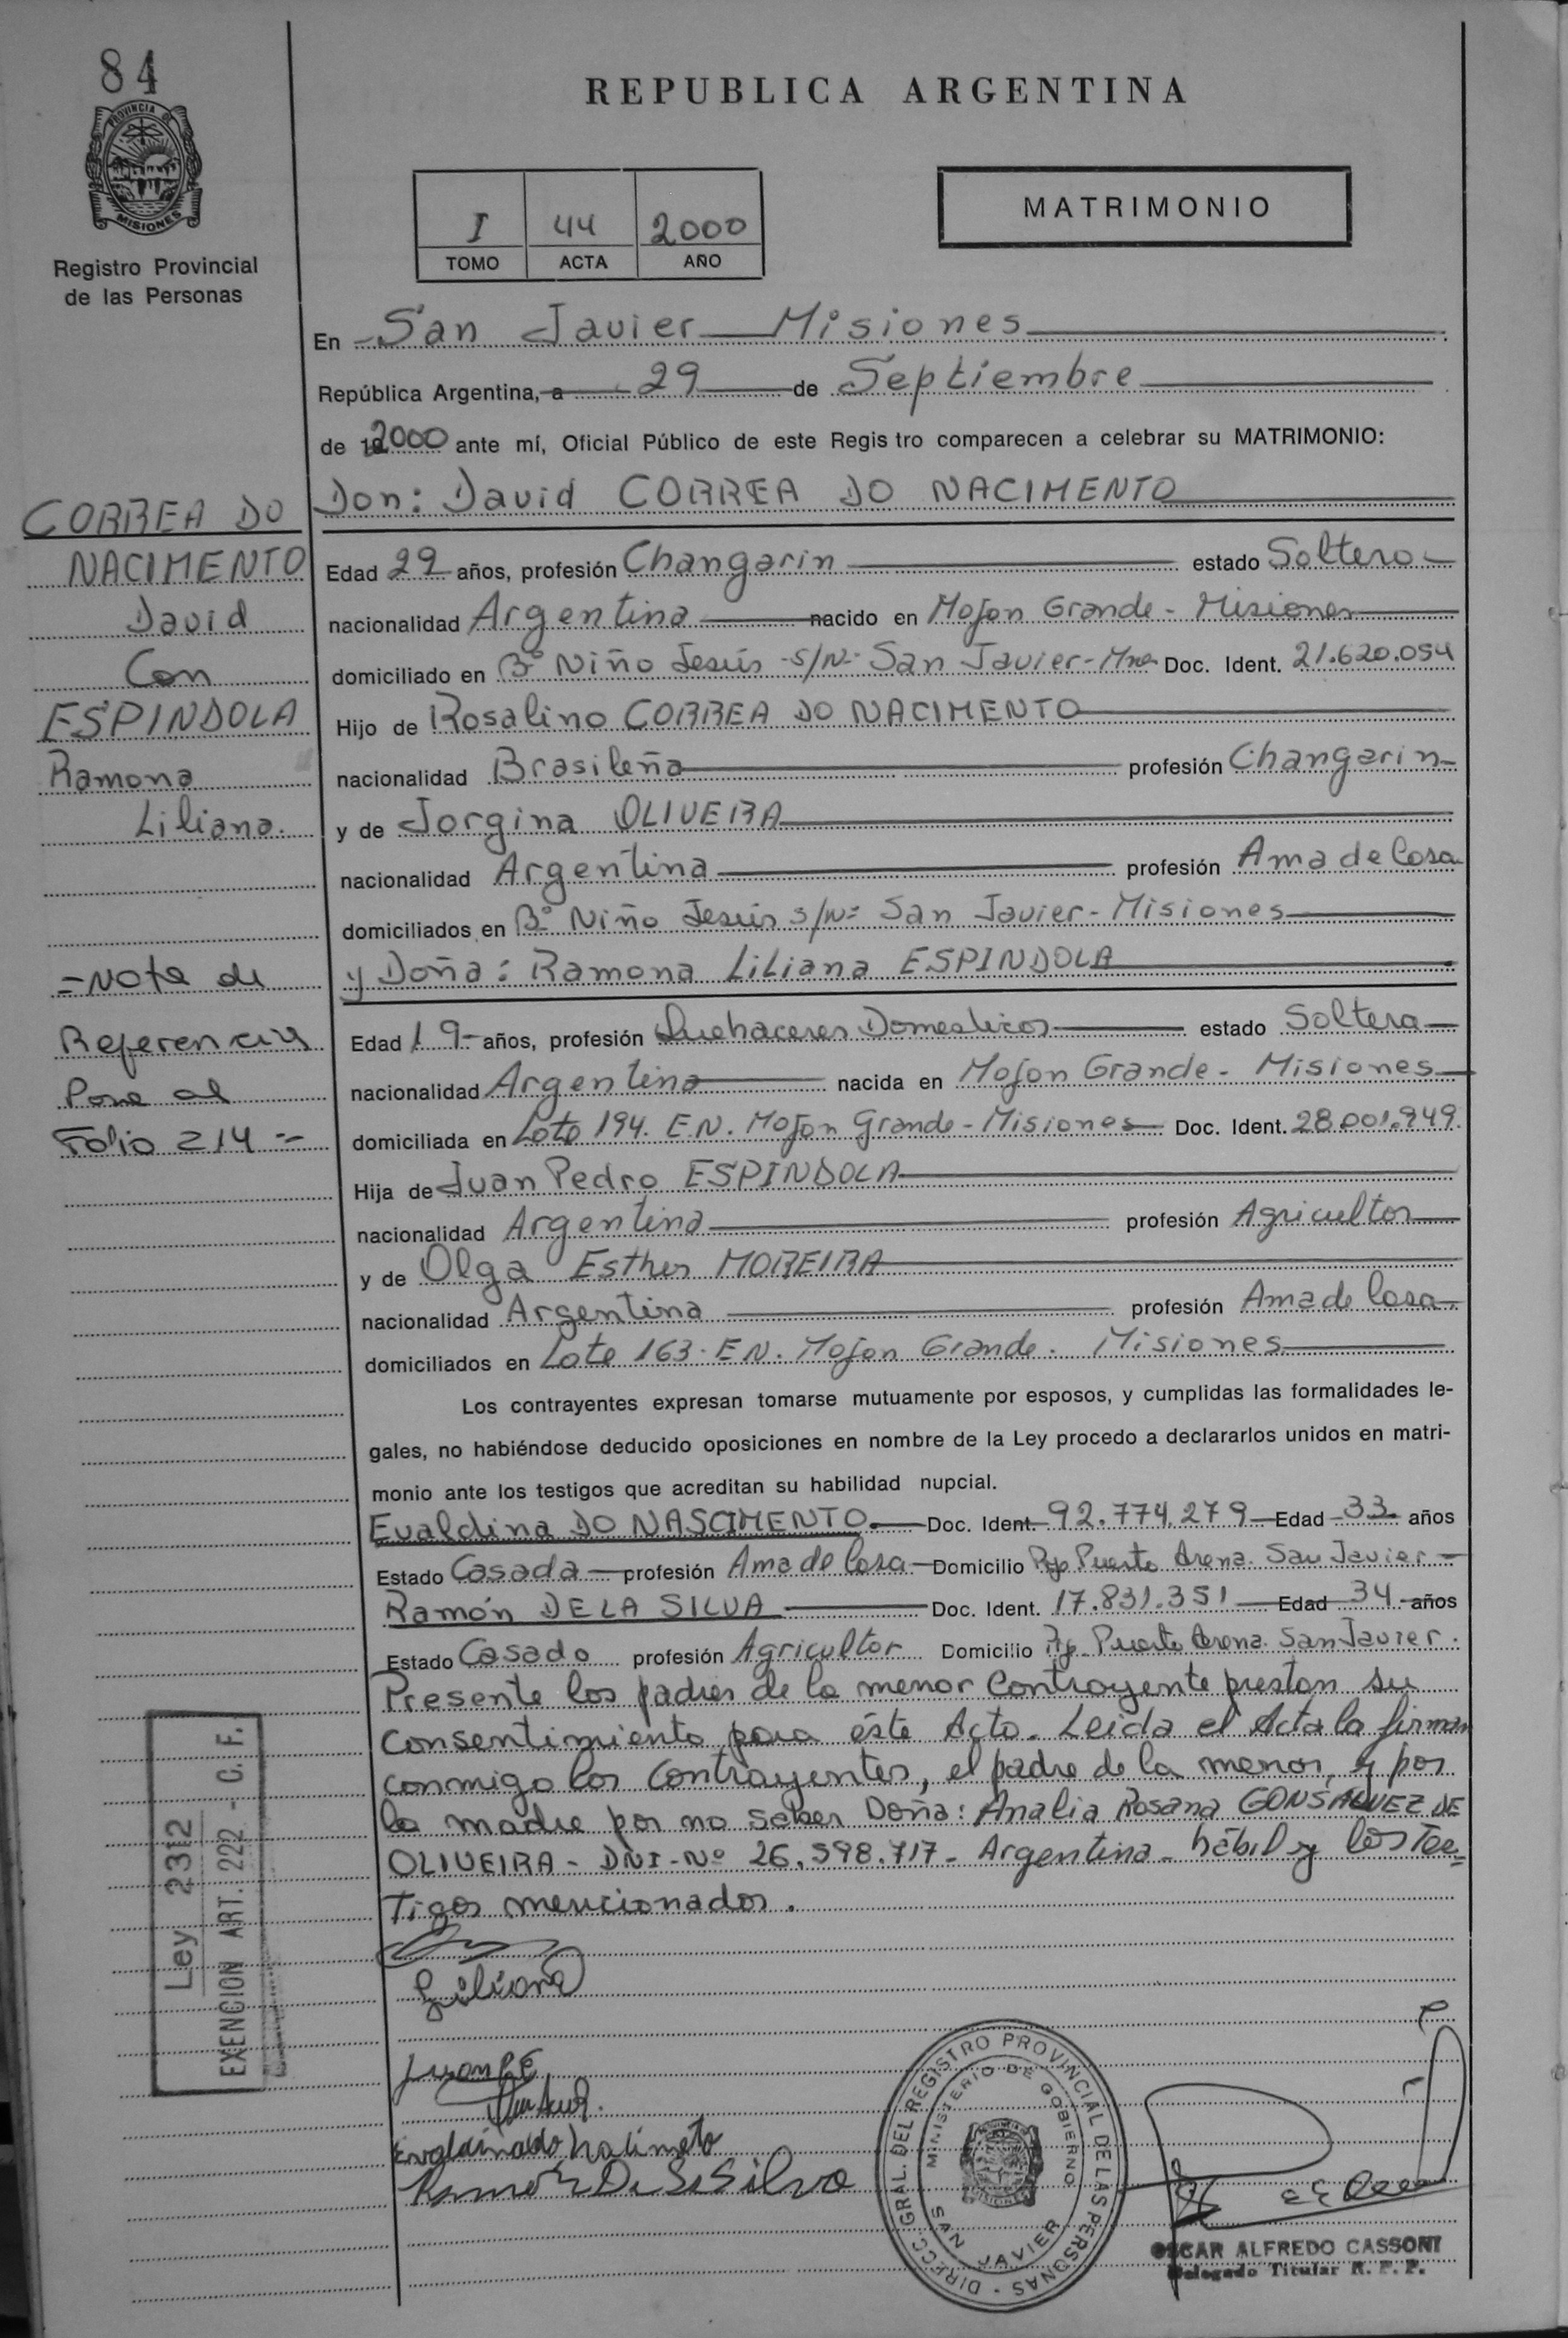 84
PROVINCIA DE
MISIONES
Registro Provincial
de las Personas
REPUBLICA ARGENTINA
I 44 2000
TOMO ACTA AÑO
MATRIMONIO
En San Javier Misiones
República Argentina, a 29 de Septiembre
de 2000 ante mí, Oficial Público de este Regis tro comparecen a celebrar su MATRIMONIO:
Don: David CORREA DO NACIMENTO
Edad 29 años, profesión Changarin estado Soltero
nacionalidad Argentina nacido en Mojon Grande - Misiones
domiciliado en Bº Niño Jesús - S/Nº San Javier - Mnes Doc. Ident. 21.620.054
Hijo de Rosalino CORREA DO NACIMENTO
nacionalidad Brasileña profesión Changarin
y de Jorgina OLIVEIRA
nacionalidad Argentina profesión Ama de Casa
domiciliados en Bº Niño Jesús s/Nº San Javier - Misiones
y Doña: Ramona Liliana ESPINDOLA
Edad 19 años, profesión Quehaceres Domesticos estado Soltera
nacionalidad Argentina nacida en Mojon Grande - Misiones
domiciliada en Lote 194. E.N. Mojon Grande - Misiones Doc. Ident. 28.001.949
Hija de Juan Pedro ESPINDOLA
nacionalidad Argentina profesión Agricultor
y de Olga Esther MOREIRA
nacionalidad Argentina profesión Ama de Casa
domiciliados en Lote 163. E N. Mojon Grande. Misiones
Los contrayentes expresan tomarse mutuamente por esposos, y cumplidas las formalidades le-
gales, no habiéndose deducido oposiciones en nombre de la Ley procedo a declararlos unidos en matri-
monio ante los testigos que acreditan su habilidad nupcial.
Evaldina DO NASCIMENTO. Doc. Ident. 92.774.279 Edad 33 años
Estado Casada profesión Ama de Casa Domicilio Pje Puerto Arena. San Javier
Ramón DE LA SILVA Doc. Ident. 17.831.351 Edad 34 años
Estado Casado profesión Agricultor Domicilio Pje Puerto Arena. San Javier.
Presente los padres de la menor Contrayente prestan su
consentimiento para éste Acto. Leida el Acta la firman
conmigo los Contrayentes, el padre de la menor, y por
la madre por no saber Doña: Analia Rosana GONSALVEZ DE
OLIVEIRA - DNI - Nº 26.598.717 - Argentina - hábil y los Tes=
Tigos mencionados.
Liliana
Ramon Da Silva
CORREA DO
NACIMENTO
David
Con
ESPINDOLA
Ramona
Liliana.
= Nota de
Referencia
Pase al
Folio 214 =
Ley 2312
EXENCION ART. 222 - C. F.
DIRECC. GRAL. DEL REGISTRO PROVINCIAL DE LAS PERSONAS
MINISTERIO DE GOBIERNO
MISIONES
SAN JAVIER
OSCAR ALFREDO CASSONI
Delegado Titular R. P. P.